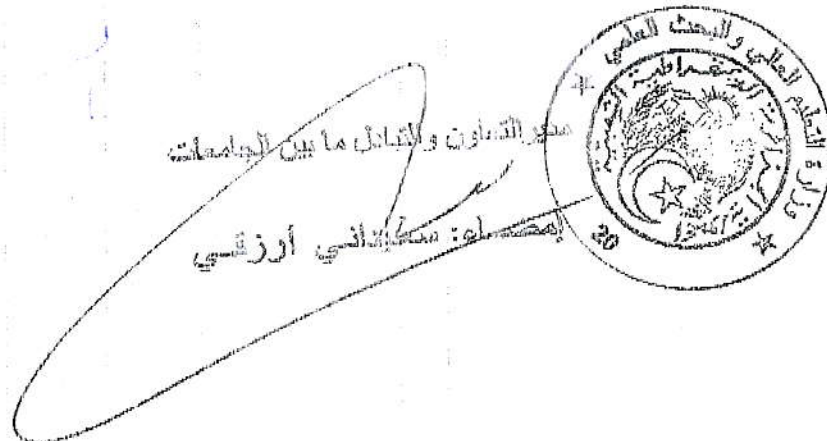 مدير التعاون والتبادل ما بين الجامعات
إمضاء: سعيداني أرزقي
وزارة التعليم العالي والبحث العلمي
الجمهورية الجزائرية الديمقراطية الشعبية
20